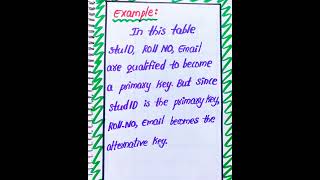 Example:
In this table
stuID, Roll NO, Email
are qualified to become
a primary key. But since
studID is the primary key,
Roll.No, Email becmes the
alternative key.